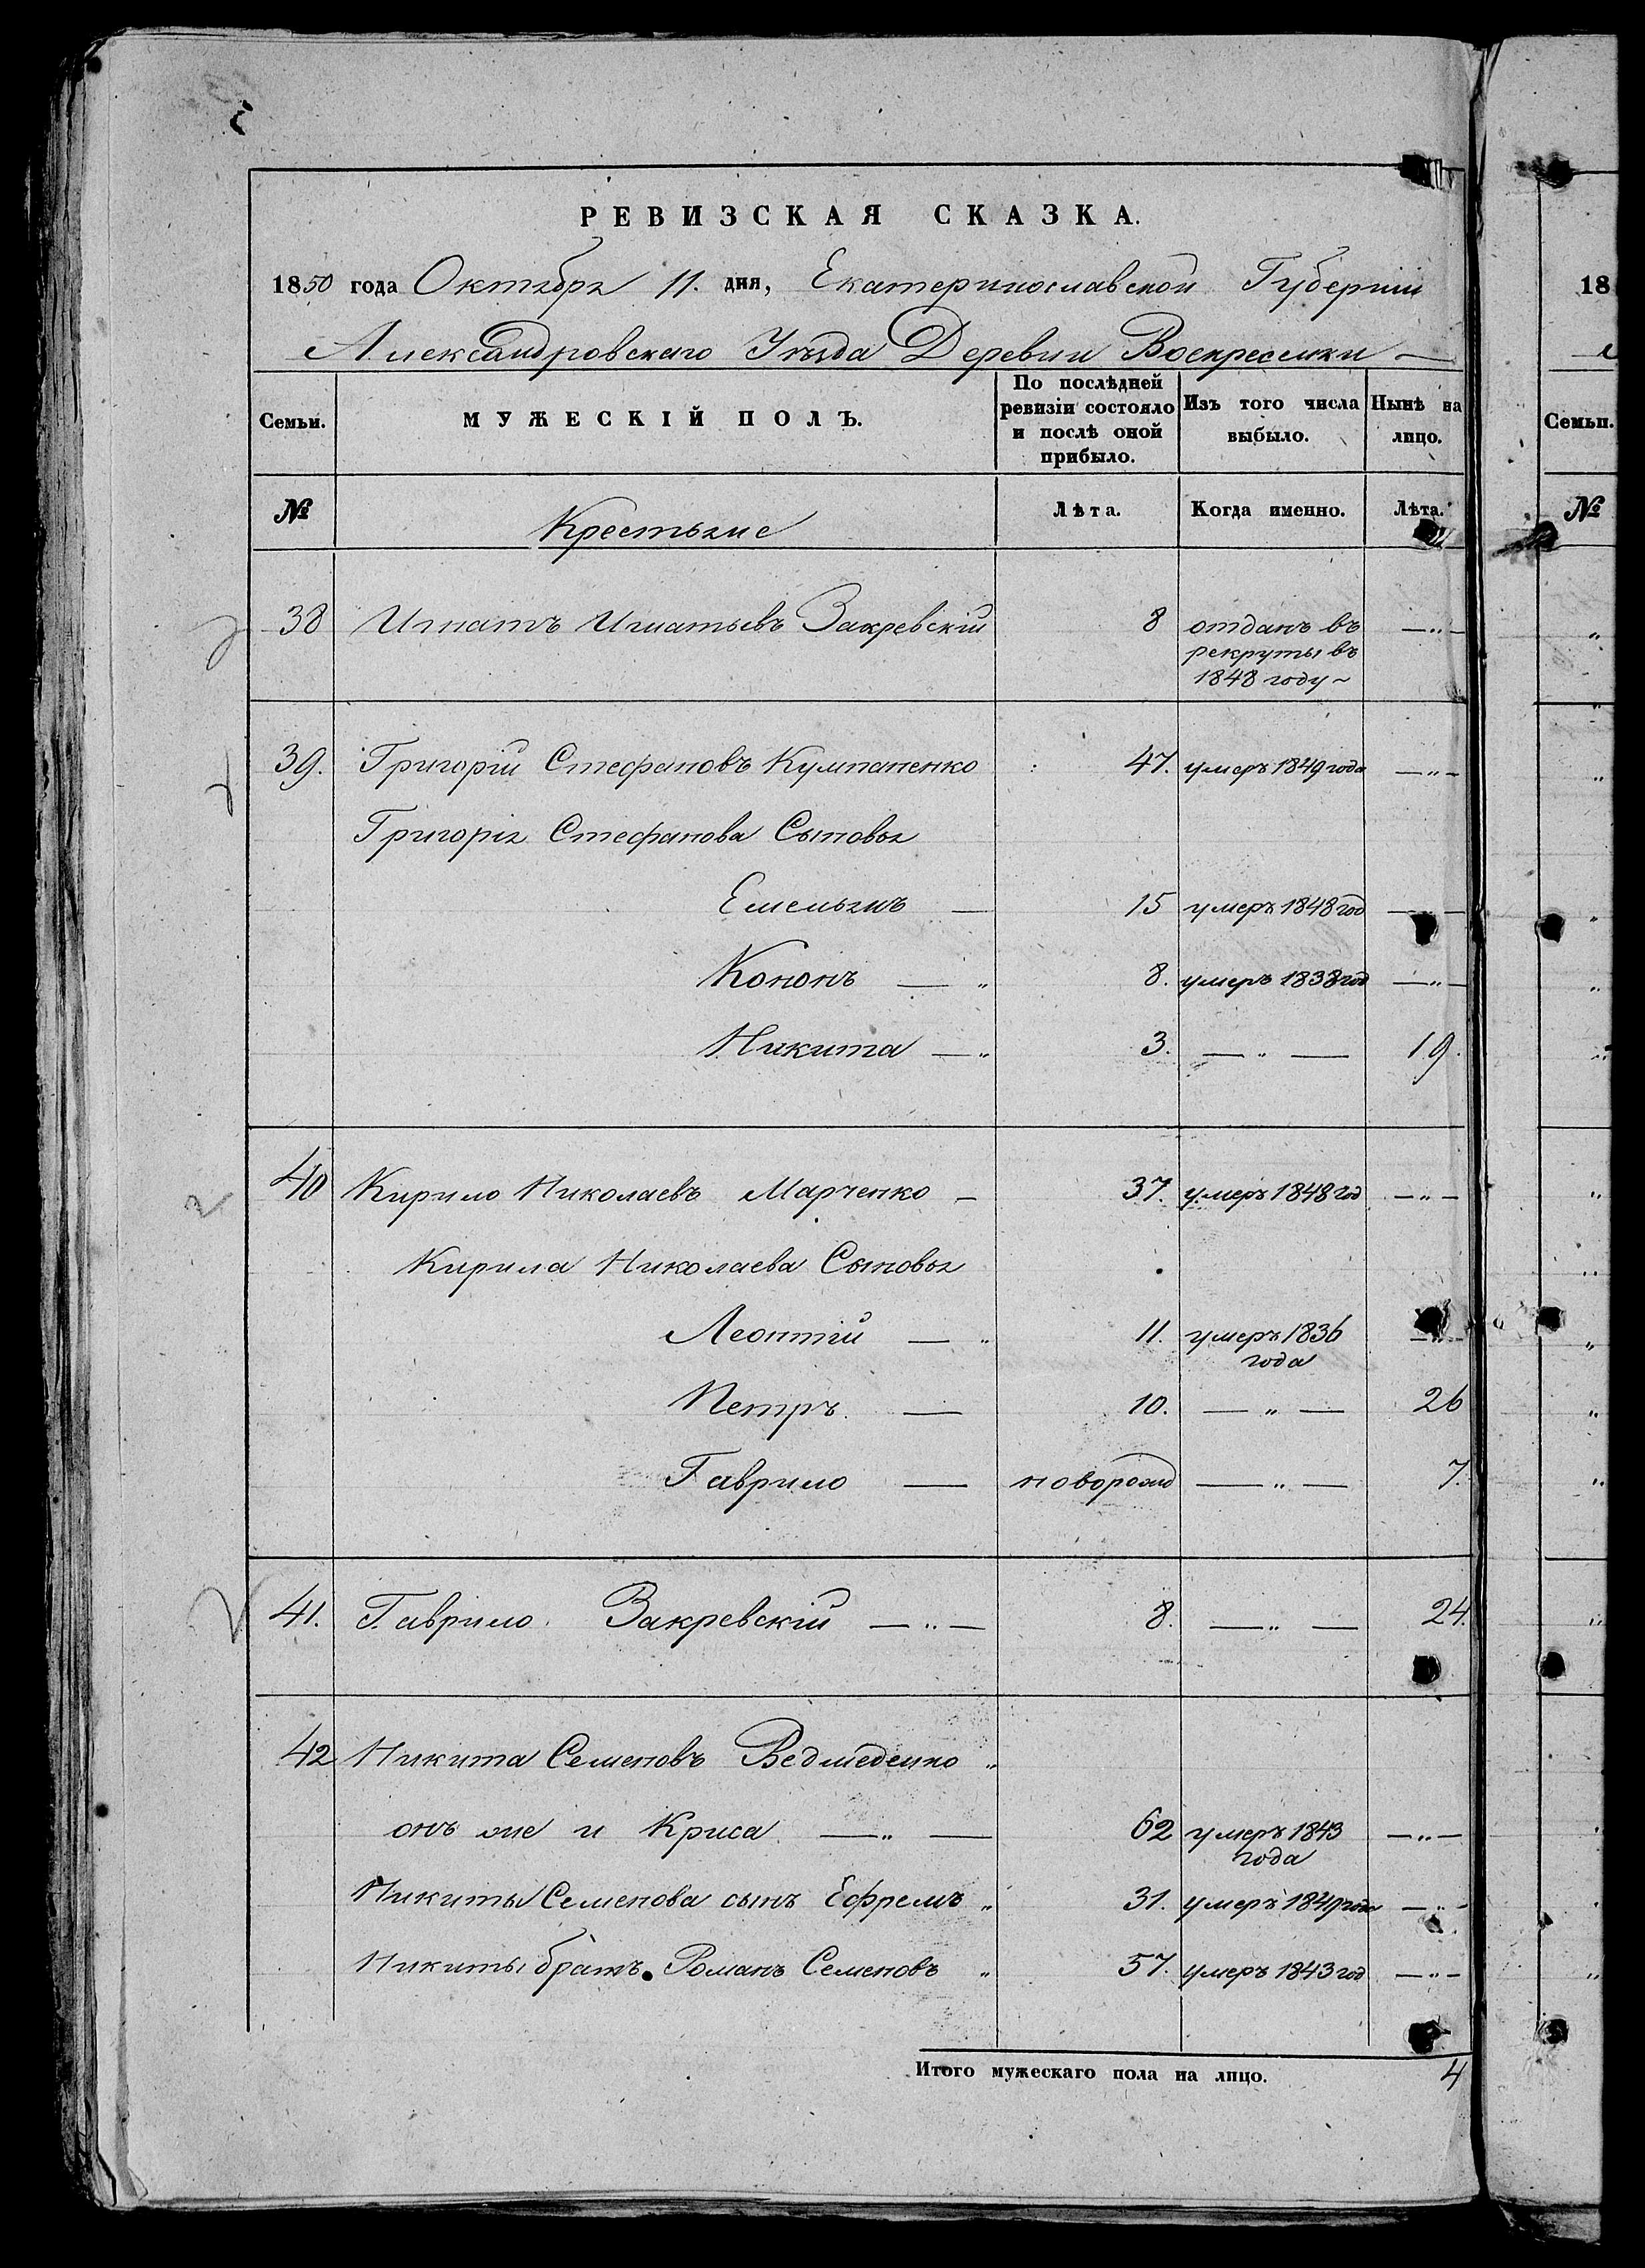 РЕВИЗСКАЯ СКАЗКА.
1850 года Октября 11. дня, Екатеринославской Губерніи
Александровскаго Уѣзда Деревни Воскресенки —
Семьи.
МУЖЕСКІЙ ПОЛЪ.
По послѣдней ревизіи состояло и послѣ оной прибыло.
Изъ того числа выбыло.
Нынѣ на лицо.
№
Крестьяне
Лѣта.
Когда именно.
Лѣта.
38 Игнатъ Игнатьевъ Закревскій 8 отданъ въ —„—
рекруты въ
1848 году ~
39. Григорій Стефановъ Кумпаненко 47. умеръ 1849 года —„—
Григорія Стефанова Сыновья
Емельянъ — 15 умеръ 1848 год —„—
Кононъ — „ 8. умеръ 1838 год —„—
Никита — „ 3. — „ — 19.
40 Кирило Николаевъ Марченко — 37. умеръ 1848 год —„—
Кирила Николаева Сыновья
Леонтій — „ 11. умеръ 1836 —„—
года
Петръ. — 10. — „ — 26
Гаврило — новорожд — „ — 7.
41. Гаврило Закревскій — „ — 8. — „ — 24.
42 Никита Семеновъ Ведмеденко „
онъ же и Криса — „ — 62 умеръ 1843 —„—
года
Никиты Семенова сынъ Ефремъ „ 31. умеръ 1849 года —„—
Никиты братъ Романъ Семеновъ „ 57. умеръ 1843 год —„—
Итого мужескаго пола на лицо. 4
18
Семьи.
№